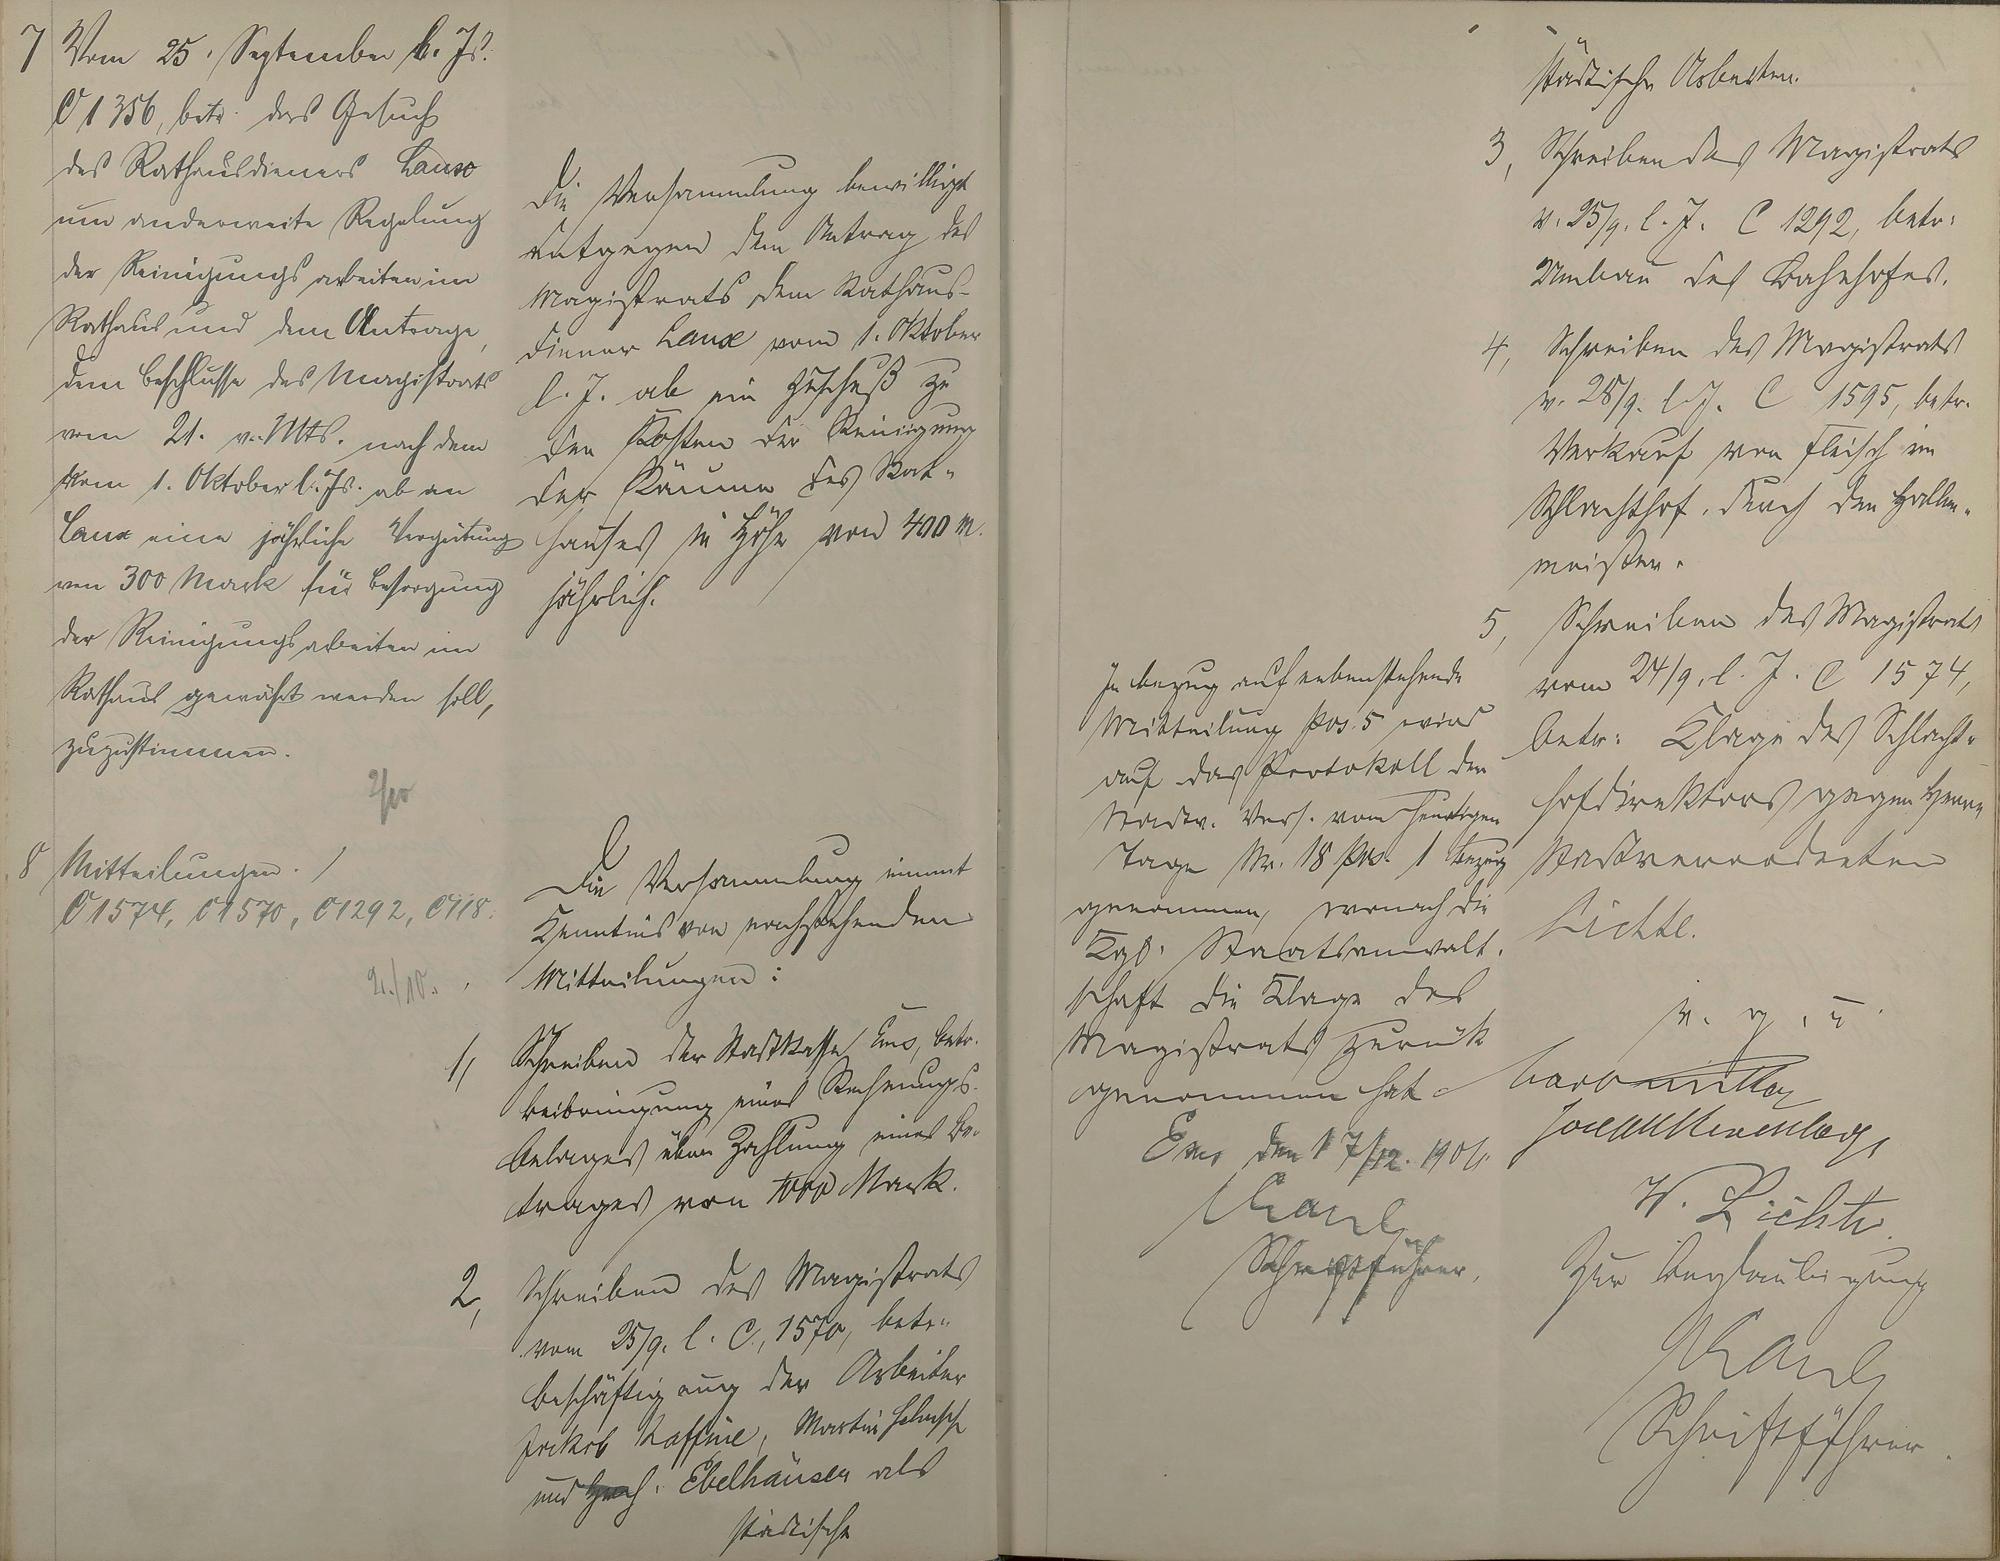 7 Vom 25. September l. Js.
C 1356, betr. das Gesuch
des Rathausdieners Laux
um anderweite Regelung
der Reinigungsarbeiten im
Rathaus und dem Antrage,
dem Beschlusse des Magistrats
vom 21. v. Mts. nach dem
vom 1. Oktober l. Js. ab an
Laux eine jährliche Vergütung
von 300 Mark für Besorgung
der Reinigungsarbeiten im
Rathaus gewährt werden soll,
zuzustimmen.
2/10
Die Versammlung bewilligt
entgegen dem Antrag des
Magistrats dem Rathaus-
diener Laux vom 1. Oktober
l. J. ab ein Zuschuß zu
den Kosten der Reinigung
der Räume des Rat-
hauses in Höhe von 400 M.
jährlich.
8 Mitteilungen.
C 1574, C 1570, C 1292, C 118.
2./10.
Die Versammlung nimmt
Kenntnis von nachstehenden
Mitteilungen:
1, Schreiben der Stadtkasse Ems, betr.
Beibringung eines Rechnungs-
belages über Zahlung eines Be-
trages von 1000 Mark.
2, Schreiben des Magistrats
vom 25/9. l. C. 1570, betr.
Beschäftigung der Arbeiter
Jakob Kaffine, Martin
und Ebelhäuser als
städtische
städtische Arbeiten.
3, Schreiben des Magistrats
v. 25/9. l. J. C 1292, betr.
Umbau des Bahnhofes.
4, Schreiben des Magistrats
v. 28/9. l. J. C 1595, betr.
Verkauf von Fleisch im
Schlachthof durch den Hallen-
meister.
5, Schreiben des Magistrats
vom 24/9. l. J. C 1574,
betr. Klage des Schlacht-
hofdirektors gegen Herrn
Stadtverordneten
Lichtl.
In bezug auf nebenstehende
Mitteilung Pos. 5 wird
auf das Protokoll der
Stadtv. Vers. vom heutigen
Tage Nr. 18 Pos. 1 bezug
genommen, wonach die
Kgl. Staatsanwalt-
schaft die Klage des
Magistrats zurück
genommen hat
Ems den 17/12. 190
Kaul
Schriftführer.
v. g. u.
W. Lichtl
Zur Beglaubigung
Kaul
Schriftführer.